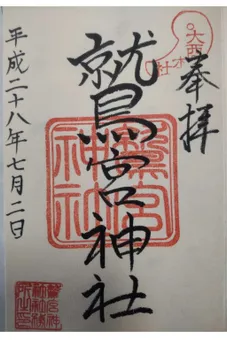 大酉本社
奉拝
鷲宮神社
鷲宮
神社
平成二十八年七月二日